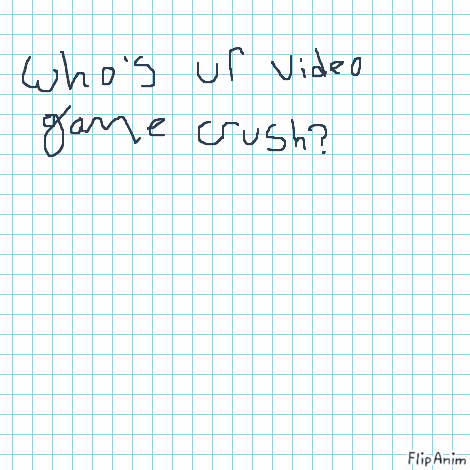 Who's ur video
game crush?
FlipAnim